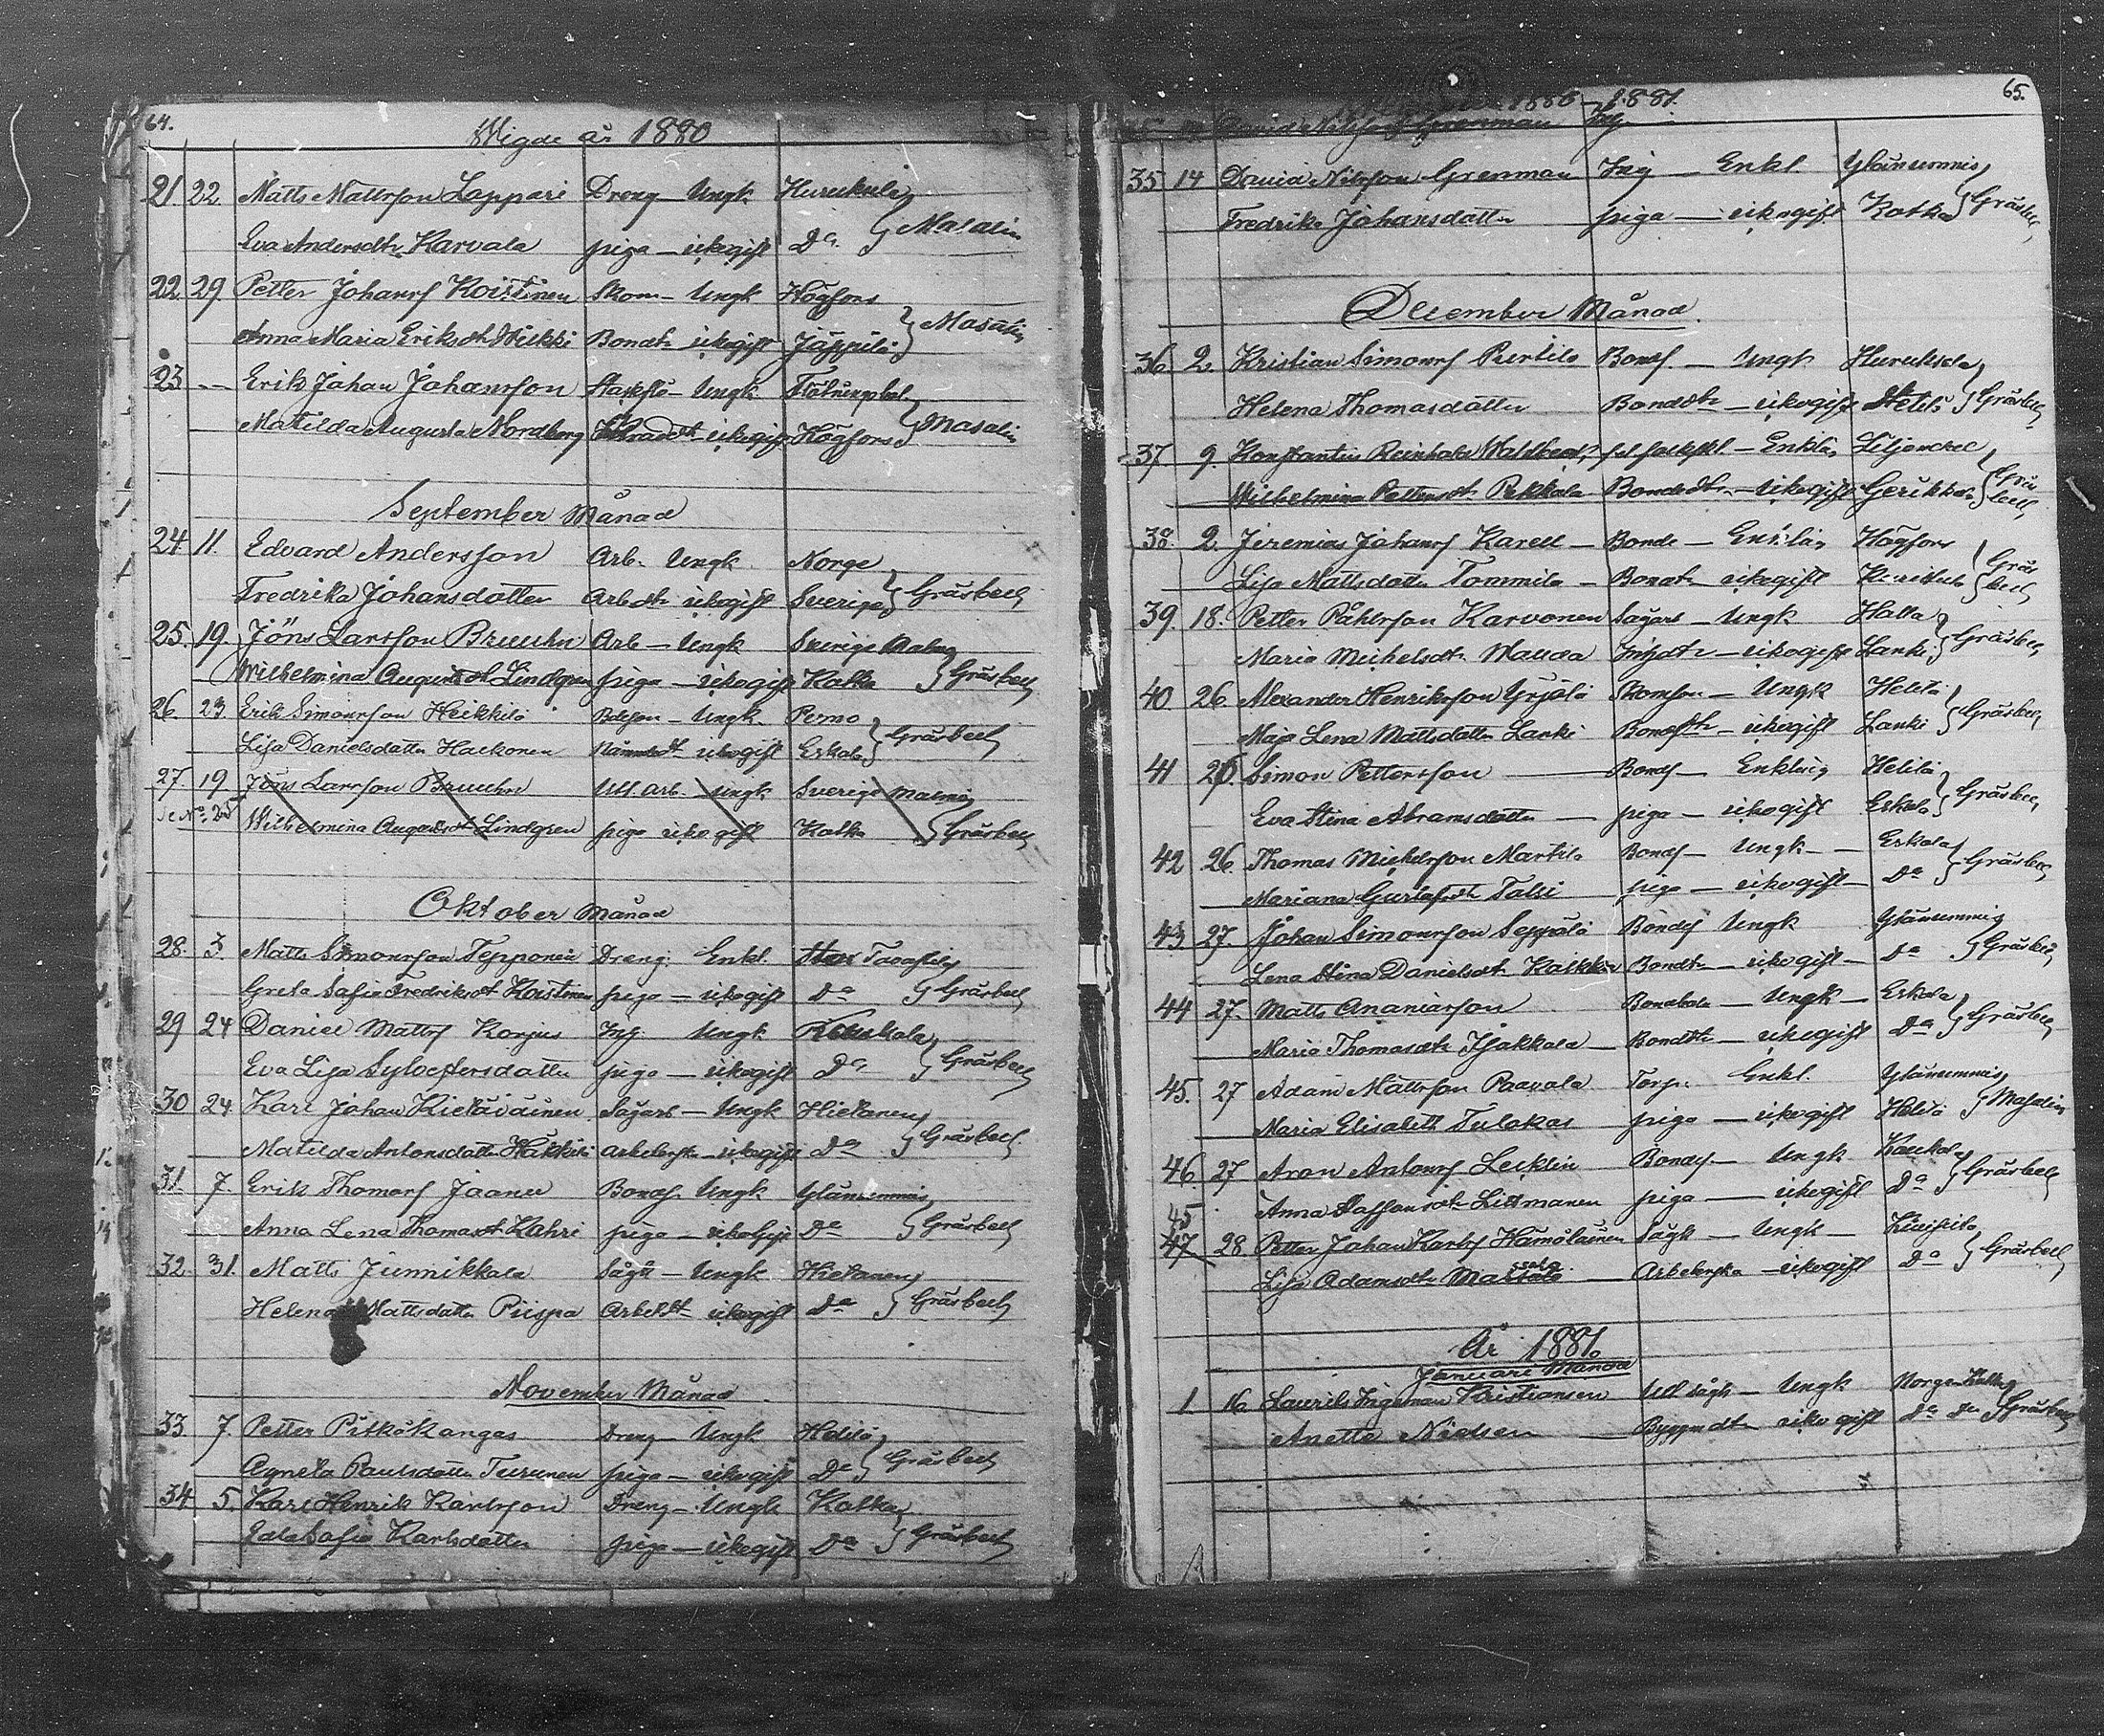 64.
Wigde år 1880
21 22 Matts Mattsson Lappari Dreng Ungk Huruksela
Eva Andersdtr Karvala piga — ickegift Do Masalin
22 29 Petter Johansf Koistinen Skom — Ungk Högfors
Anna Maria Eriksdtr Wirkki Bondtr ickegift Jäppilä Masalin
23 — Erik Johan Johansson Ungk
Matilda Augusta Nordberg ickegift Högfors Masalin
September Månad
24 11. Edvard Andersson Arb. Ungk Norge
Fredrika Johansdotter Arbdtr ickegift Sverige Gräsbeck
25. 19. Jöns Larsson Bruuhn Arb — Ungk Sverige Malmö
Wilhelmina Augustdtr Lindgren piga — ickegift Kotka Gräsbeck
26. 23 Erik Simonsson Heikkilä Bdeson — Ungk Perno
Lisa Danielsdotter Hackonen ickegift Eskola Gräsbeck
27. 19 Jöns Larsson Bruuhn Utl. arb. Ungk Sverige Malmö
Se No 25 Wilhelmina Augustdt Lindgren piga ickegift Kotka Gräsbeck
Oktober Månad
28. 3. Matts Simonsson Tepponen Dreng Enkl. Tavastila
Greta Sofia Fredriksdt Koistinen piga — ickegift Do Gräsbeck
29 24 Daniel Mattsf Korjus Inh. Ungk
Eva Lisa Sylvestersdotter piga — ickegift Do Gräsbeck
30 24 Karl Johan Kietäväinen Sågarb — Ungk Hietanen
Matilda Antonsdotter Häkkili Arbeterska — ickegift Do Gräsbeck
31. 7. Erik Thomasf Jaanu Bondes. Ungk Ylänummis
Anna Lena Thomasdt Kahri piga — ickegift Do Gräsbeck
32. 31. Matts Junnikkala Sågk — Ungk Hietanen
Helena Mattsdotter Piispa Arbetdt ickegift Do Gräsbeck
November Månad
33. 7. Petter Pitkäkangas Dreng — Ungk Heliлä
Agneta Paulsdotter Turunen piga — ickegift Do Gräsbeck
34 5. Karl Henrik Karlsson Dreng — Ungk Kotka
Edla Sofia Karlsdotter piga — ickegift Do Gräsbeck
65.
1880 — 1881.
35 14 David Nilsson Grenman Inh — Enkl. Ylänummis
Fredrika Johansdotter piga — ickegift Kotka Gräsbeck
December Månad.
36 2. Kristian Simonsf Perttilä Bondf. — Ungk Huruksela
Helena Thomasdotter Bonddtr — ickegift Heliлä Gräsbeck
37. 9. Konstantin Reinhold Enkling Liljendal
Wilhelmina Pettersdt Pekkala Bondedtr — ickegift Gerikkala Gräsbeck
38. 2. Jeremias Johansf Karell — Bonde — Enkling Högfors
Lisa Mattsdotter Tommila — Bondtr ickegift Gräsbeck
39. 18. Petter Påhlsson Karvonen Sågarb — Ungk Halla
Maria Michelsdtr Mauda Inhdtr — ickegift Lanki Gräsbeck
40 26 Alexander Henriksson Yrjölä Ungk
Maja Lena Mattsdotter Lanki Bondtr — ickegift Lanki Gräsbeck
41 26. Simon Pettersson — Bondf — Enkling
Eva Stina Abramsdotter — piga — ickegift Eskola Gräsbeck
42 26. Thomas Michelsson Marttila Bondf — Ungk — Eskola
Mariana Gustafsdt Talsi piga — ickegift — Do Gräsbeck
43 27. Johan Simonsson Seppälä Bondf Ungk Ylänummis
Lena Stina Danielsdt Bondtr — ickegift — Do Gräsbeck
44 27. Matts Ananiasson Ungk — Eskola
Maria Thomasdt — Bonddtr — ickegift Do Gräsbeck
45. 27 Adam Mattsson Paavola Torp. Enkl. Ylänummis
Maria Elisabeth Tulokas piga — ickegift Masalin
46 27 Aron Antonsf Lecklin Bondf. — Ungk
Anna Staffansdtr Littmanen piga — ickegift Do Gräsbeck
45
47 28. Petter Johan Karlsf Hämäläinen Sågk — Ungk —
Lisa Adamsdtr — Arbeterska — ickegift Do Gräsbeck
År 1881.
Januari Månad
1 16 Laurits Ingeman Kristiansen Utl sågk — Ungk Norge Kotka
Anette Nielsen — ickegift Do Do Gräsbeck